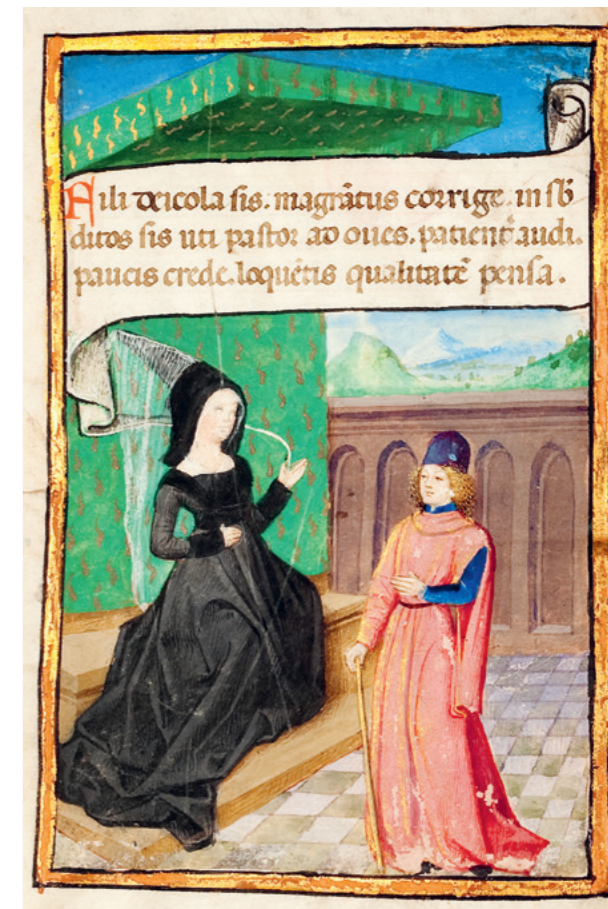 Fili deicola sis. magnãtus corrige. in sb
ditos sis uti pastor ad oues. patient̃ audi.
paucis crede. loquẽtis qualitatẽ pensa.